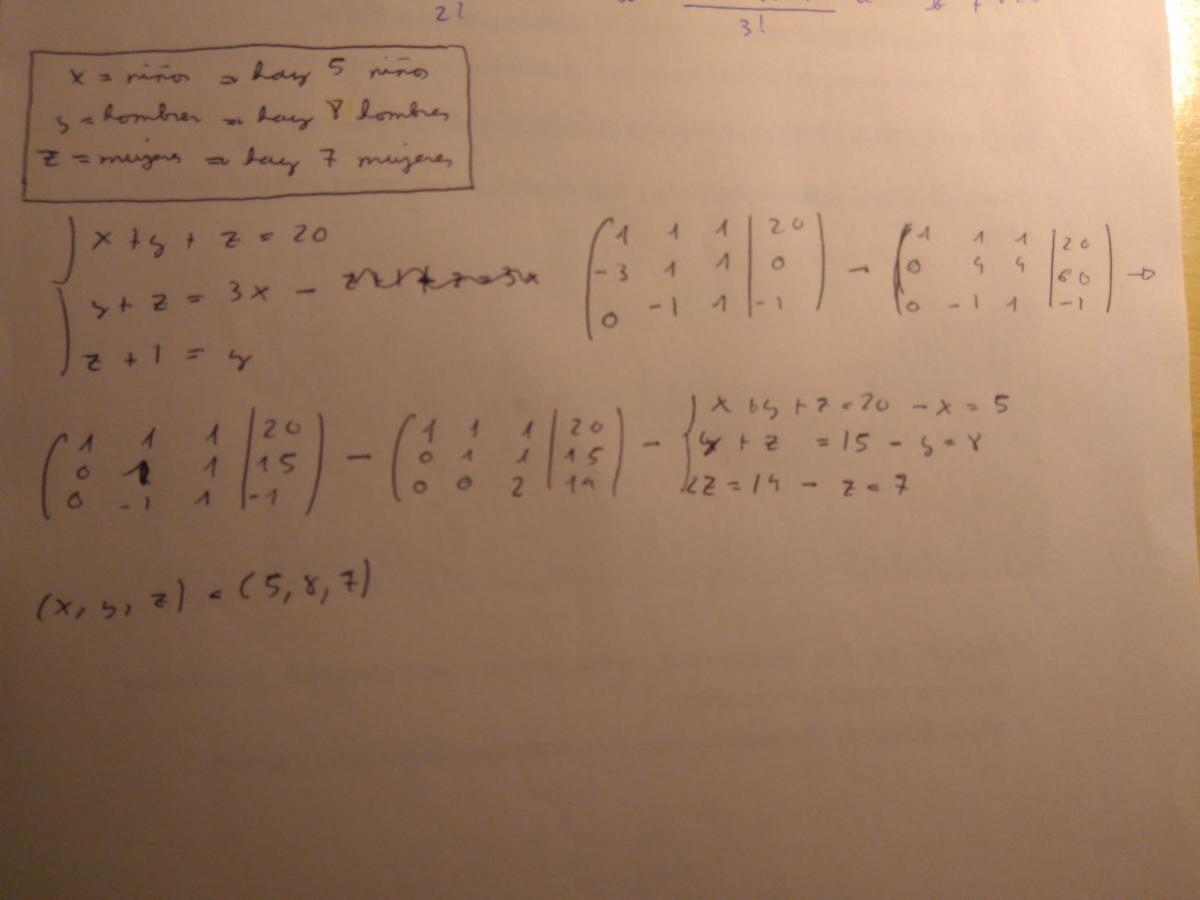 2!
3!
x = niños ⇒ hay 5 niños
y = hombres ⇒ hay 8 hombres
z = mujeres ⇒ hay 7 mujeres
x + y + z = 20
y + z = 3x –
z + 1 = y
1 1 1 | 20
-3 1 1 | 0
0 -1 1 | -1
→
1 1 1 | 20
0 4 4 | 60
0 -1 1 | -1
→
1 1 1 | 20
0 1 1 | 15
0 -1 1 | -1
→
1 1 1 | 20
0 1 1 | 15
0 0 2 | 14
→
x + y + z = 20 → x = 5
y + z = 15 → y = 8
2z = 14 → z = 7
(x, y, z) = (5, 8, 7)